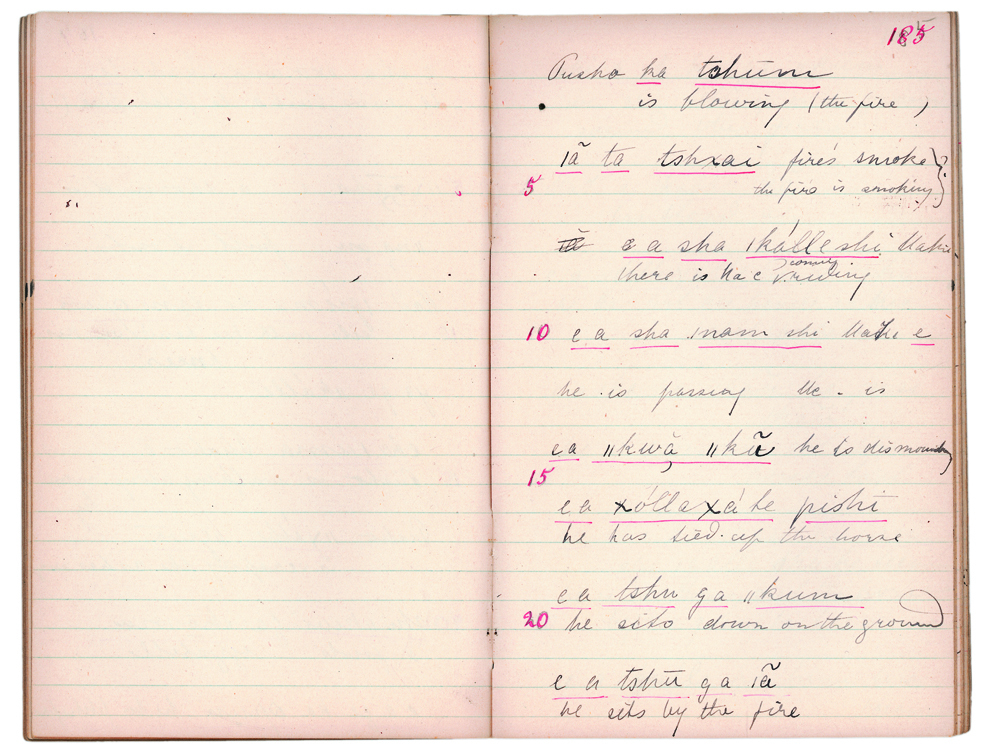 185
Pusho ha tshūm
is blowing (the fire)
|ã ta tshxai fire's smoke
5 the fire is smoking } ?
e a sha |kálleshi
there is Mac coming riding
10 e a sha |nam shi e
he is passing Mc - is
e a ||kwā ||kũ he is dismounting
15
e a xóllaxá he pishi
he has tied up the horse
e a tshu ga ||kum
20 he sits down on the ground
e a tshū ga |ã
he sits by the fire